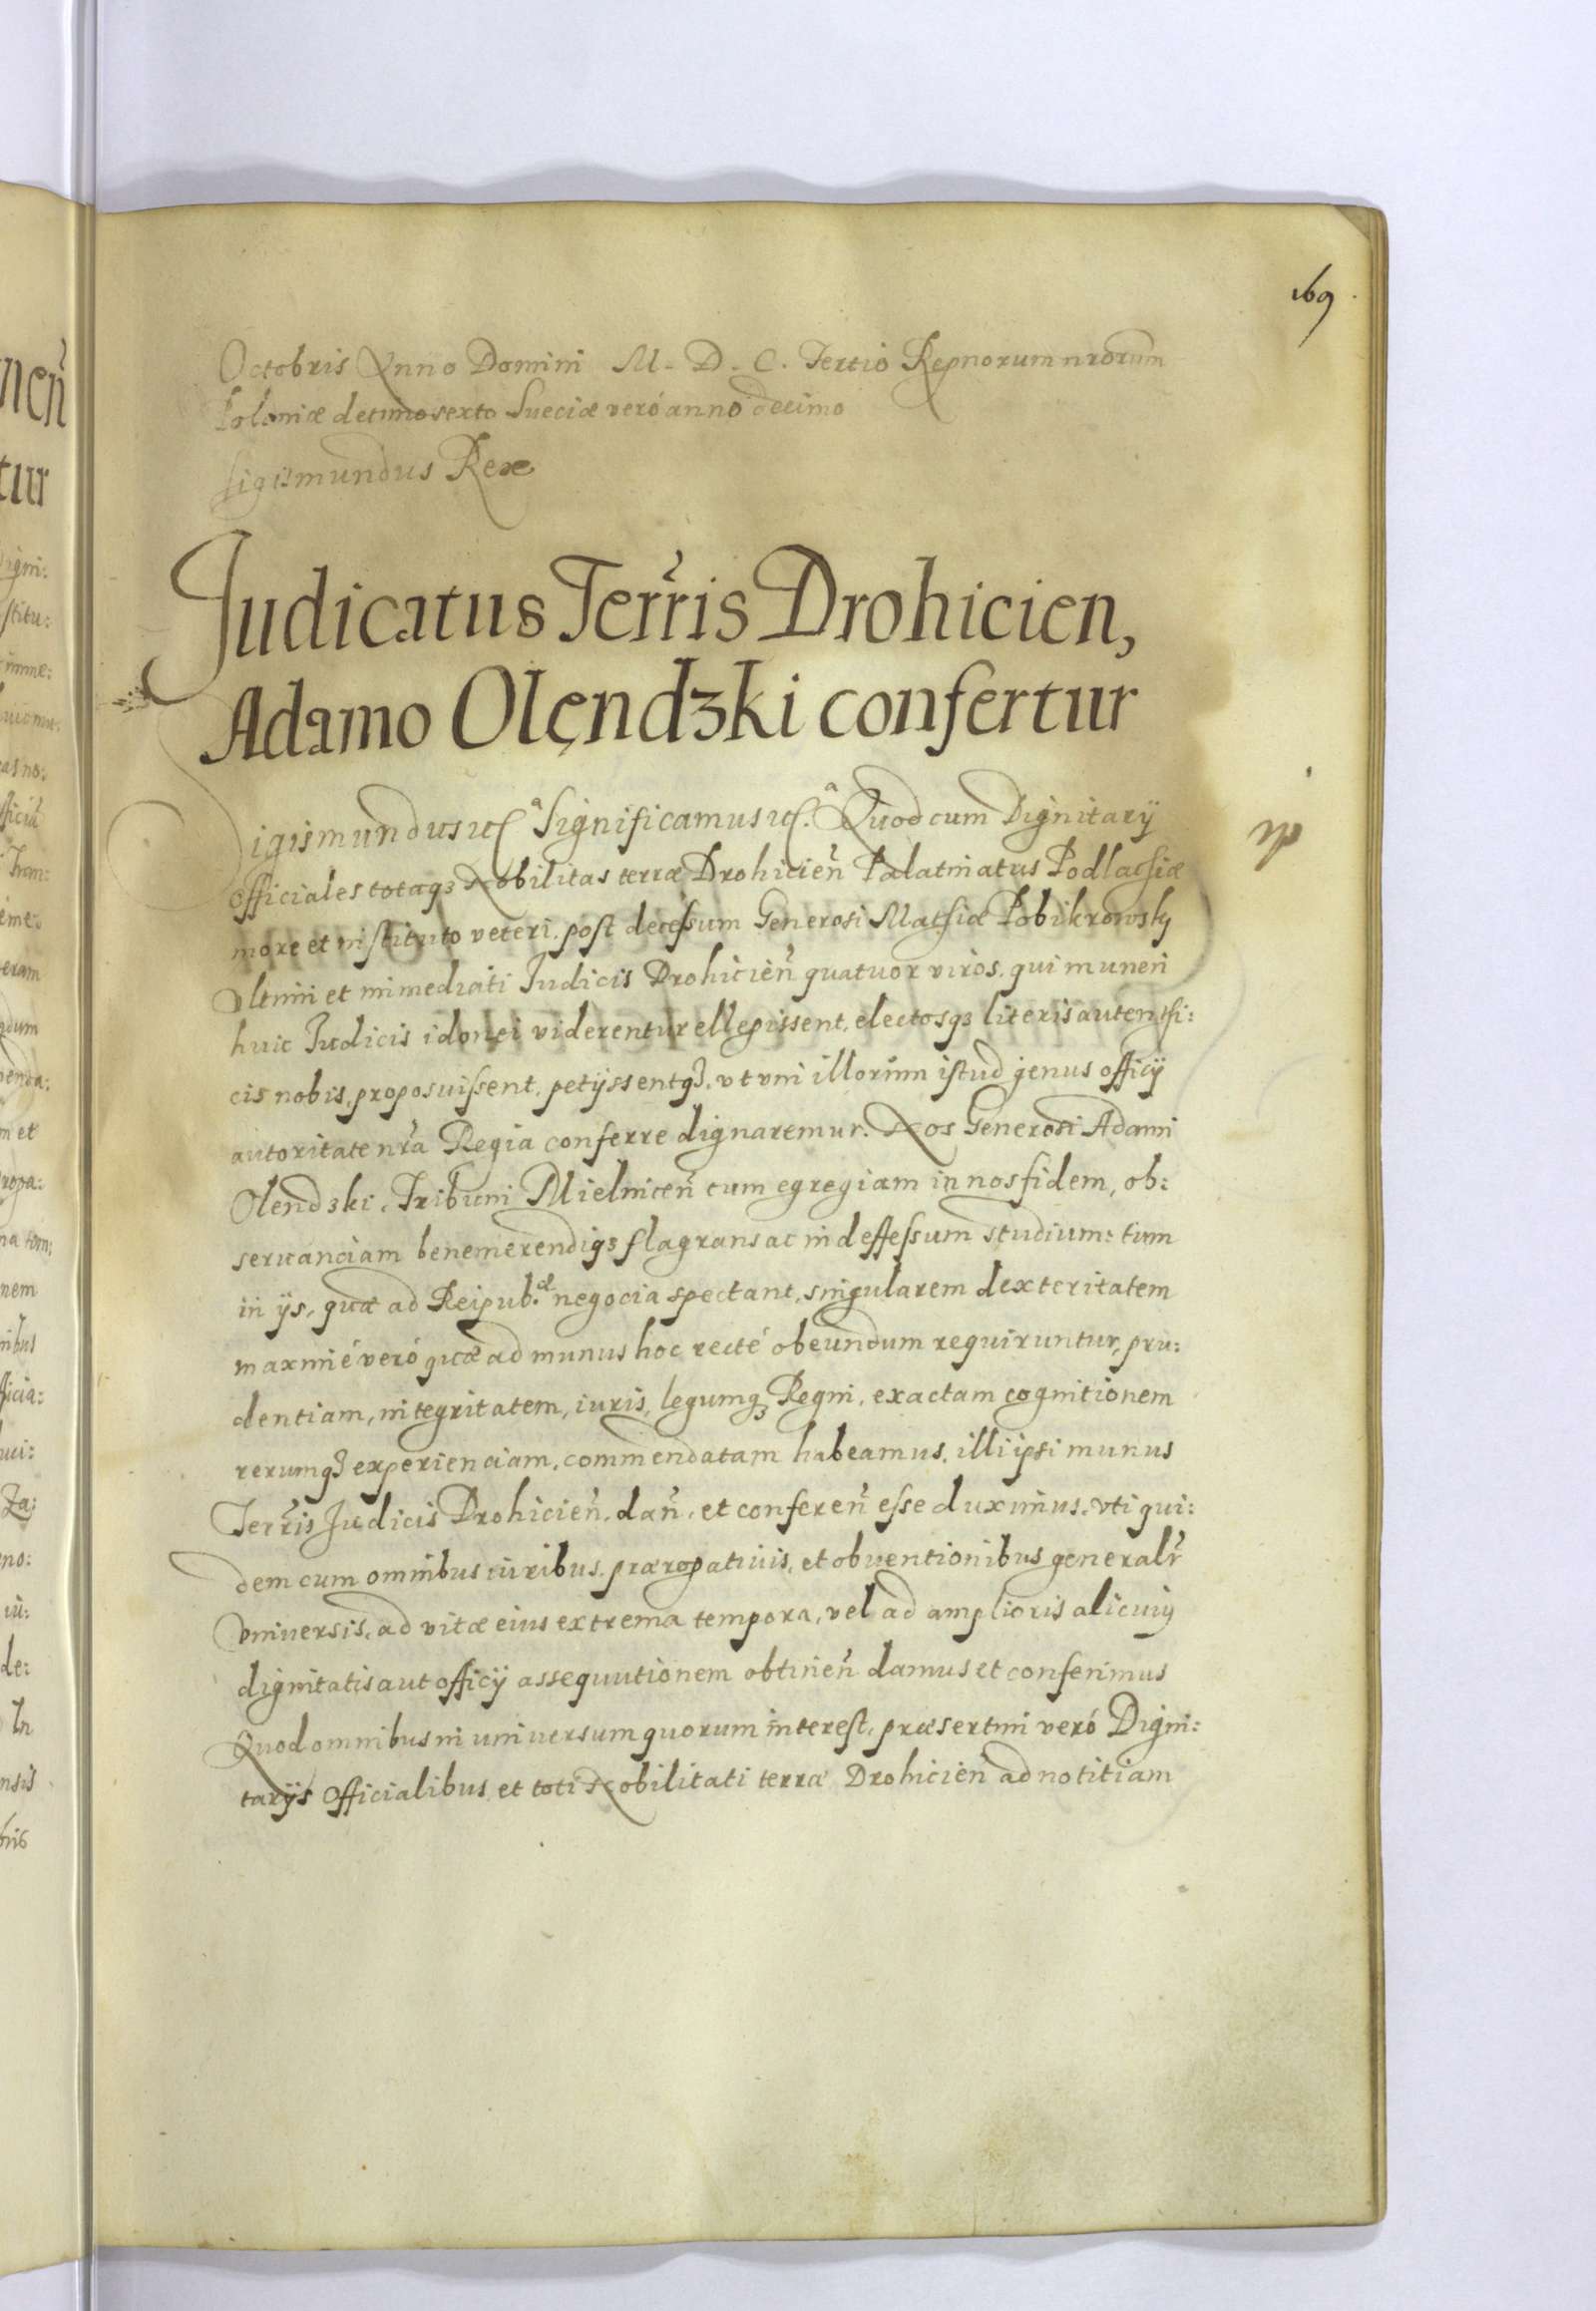 169
Octobris Anno Domini M. D. C. Tertio Regnorum nrorum
Poloniæ decimosexto Sueciæ veró anno decimo
Sigismundus Rex
Judicatus Terr̃is Drohicien,
Adamo Olęndzki confertur
Sigismundus etc.ª Significamus etc.ª Quod cum Dignitarÿ
officiales totaqꝫ Nobilitas terræ Drohicieñ Palatinatus Podlachiæ
more et instituto veteri, post decessum Generosi Mathiæ Pobikrowsky
Vltimi et immediati Judicis Drohicieñ quatuor viros, qui muneri
huic Judicis idonei viderentur ellegissent, electosqꝫ literis autenthi:
cis nobis, proposuissent, petÿssentqꝫ, vt vni illorum istud genus officÿ
autoritate nr̃a Regia conferre dignaremur. Nos Generosi Adami
Olendzki, Tribuni Mielniceñ cum egregiam in nos fidem, ob:
seruanciam benemerendiqꝫ flagrans ac indeffessum studium: tum
in ÿs, quæ ad Reipub.æ negocia spectant, singularem dexteritatem
maximé veró quæ ad munus hoc recté obeundum requiruntur, pru:
dentiam, integritatem, iuris, legumqꝫ Regni, exactam cognitionem
rerumqꝫ experienciam, commendatam habeamus, illi ipsi munus
Terr̃is Judicis Drohicieñ, dañ, et confereñ esse duximus, vti qui:
dem cum omnibus iuribus, prærogatiuis, et obuentionibus generalr̃
Vniuersis, ad vitæ eius extrema tempora, vel ad amplioris alicuiꝰ
dignitatis aut officÿ assequutionem obtineñ damus et conferimus
Quod omnibus in universum quorum interest, præsertim veró Digni:
tarÿs Officialibus et toti Nobilitati terræ Drohicieñ ad notitiam